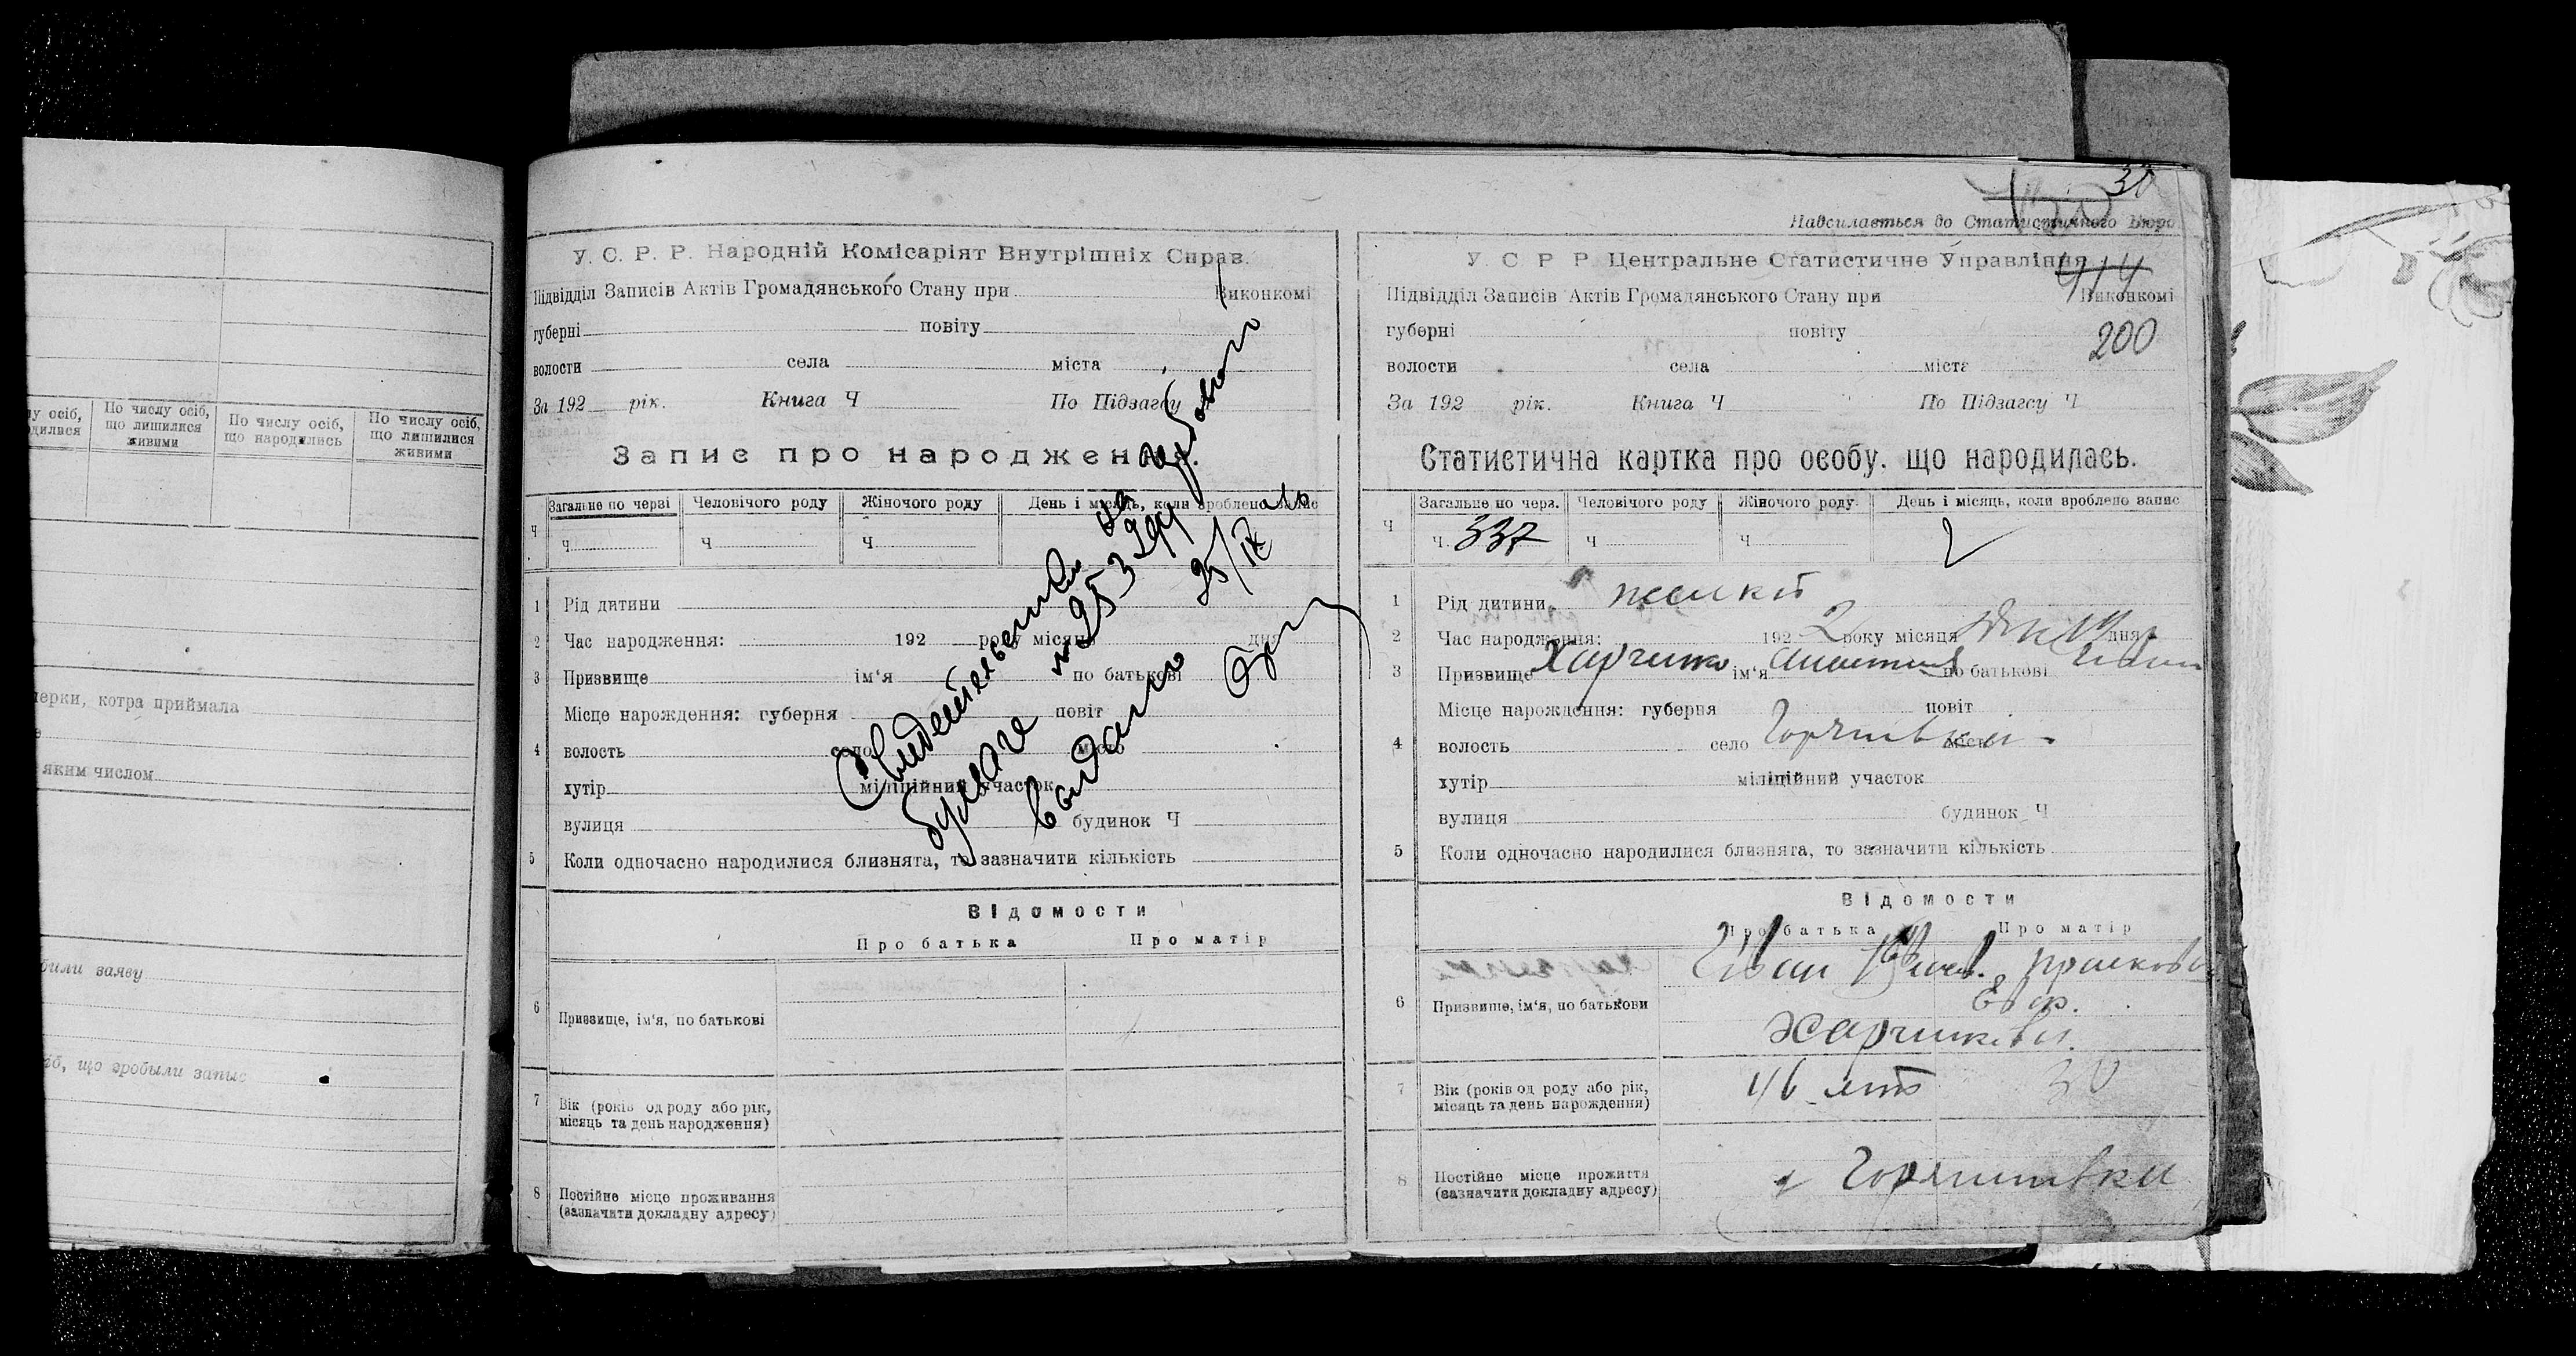 у осіб,
дилися
По числу осіб,
що лишилися
живими
По числу осіб,
що народились
По числу осіб,
що лишилися
живими
черки, котра приймала
яким числом
били заяву
іб, що зробыли запис
У. С. Р. Р. Народній Комісаріят Внутрішніх Справ.
Підвідділ Записів Актів Громадянського Стану при Виконкомі
губерні повіту
волости села міста
За 192 рік. Книга Ч По Підзагсу
Запис про народжен
Загальне по черзі Человічого роду Жіночого роду День і місяць, коли зроблено запис
Ч Ч Ч Ч
1 Рід дитини
2 Час народження: 192 року місяць дня
3 Призвище ім'я по батькові
Місце народження: губерня повіт
4 волость село місто
хутір міліційний участок
вулиця будинок Ч
5 Коли одночасно народилися близнята, то зазначити кількість
Відомости
Про батька Про матір
6 Призвище, ім'я, по батькові
7 Вік (років од роду або рік,
місяць та день народження)
8 Постійне місце проживання
(зазначити докладну адресу)
бумаге № 253294
выдано 25/IX
30
Надсилається до Статистичного Бюро
У С Р Р Центральне Статистичне Управління
414
Підвідділ Записів Актів Громадянського Стану при Виконкомі
губерні повіту
200
волости села міста
За 192 рік. Книга Ч По Підзагсу Ч
Статистична картка про особу, що народилась.
Загальне по черз. Человічого роду Жіночого роду День і місяць, коли зроблено запис
Ч Ч 337 Ч Ч 2
1 Рід дитини
2 Час народження: 192 2 року місяця дня
3 Призвище Харченко ім'я по батькові
Місце нарождення: губерня повіт
4 волость село місто
хутір міліційний участок
вулиця будинок Ч
5 Коли одночасно народилися близнята, то зазначити кількість
Відомости
Про батька Про матір
Иван
6 Призвище, ім'я, по батькови
Евф.
7 Вік (років од роду або рік, 46 лет 30
місяць та день нарождення)
8 Постійне місце прожиття
(зазначити докладну адресу)